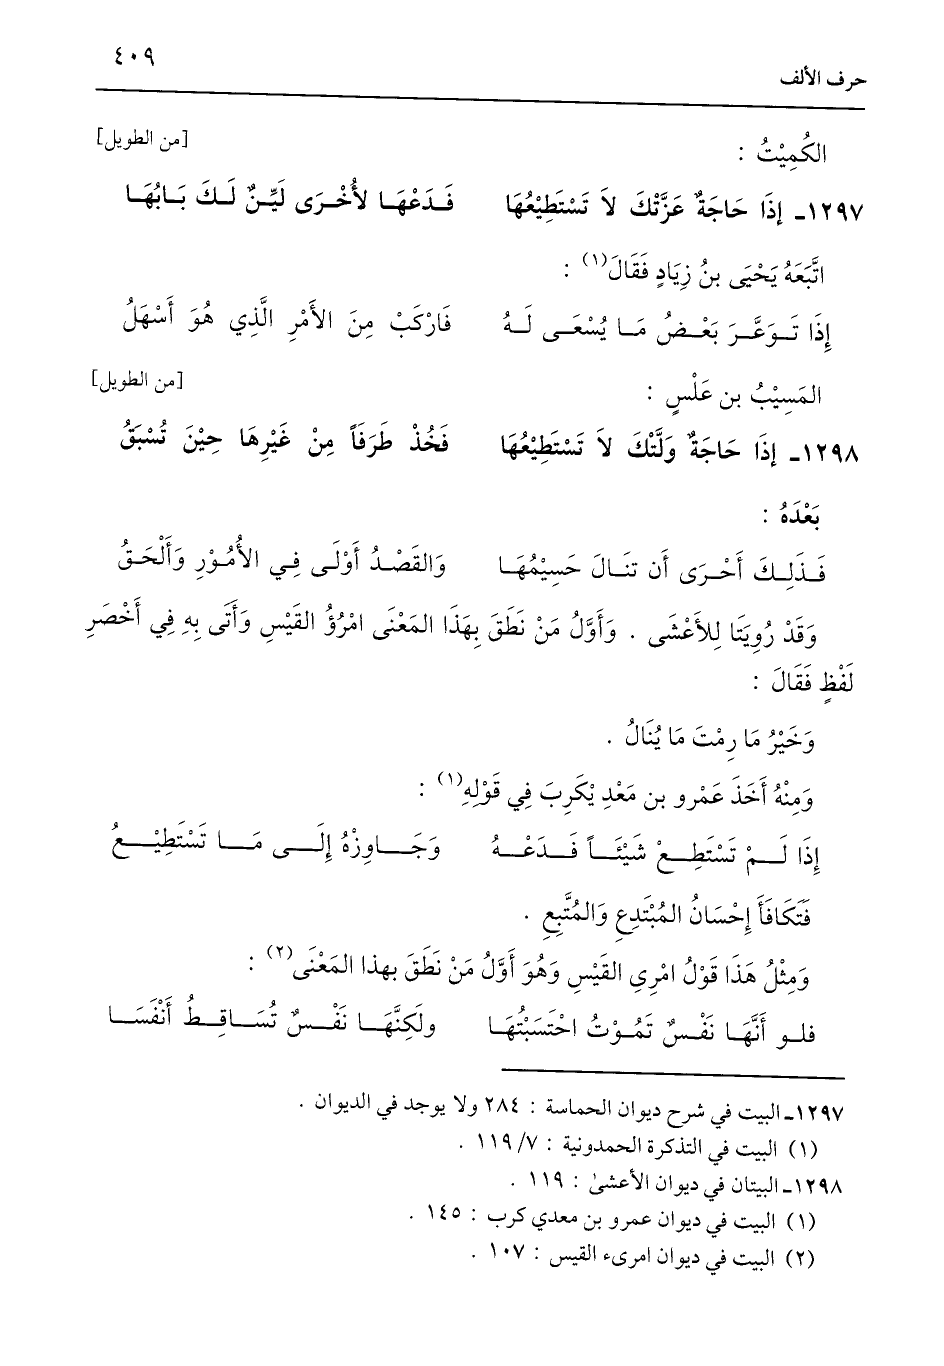 ٤٠٩
حرف الألف
الكُمِيْتُ : [من الطويل]
١٢٩٧ـ إذَا حَاجَةٌ عَزَّتْكَ لاَ تَسْتَطِيْعُهَا فَـدَعْهَـا لأُخْـرَى لَيِّـنٌ لَـكَ بَـابُهَـا
اتَّبَعَهُ يَحْيَى بنُ زِيَادٍ فَقَالَ(١) :
إِذَا تَـوَعَّـرَ بَعْـضُ مَـا يُسْعَـى لَـهُ فَارْكَبْ مِنَ الأَمْرِ الَّذِي هُوَ أَسْهَلُ
المَسِيْبُ بن عَلْسٍ : [من الطويل]
١٢٩٨ـ إذَا حَاجَةٌ وَلَّتْكَ لاَ تَسْتَطِيْعُهَا فَخُذْ طَرَفَاً مِنْ غَيْرِهَا حِيْنَ تُسْبَقُ
بَعْدَهُ :
فَـذَلِـكَ أَحْـرَى أَن تنَـالَ جَسِيْمُهَـا وَالقَصْـدُ أَوْلَى فِـي الأُمُـوْرِ وَأَلْحَـقُ
وَقَدْ رُوِيَتَا لِلأَعْشَى . وَأَوَّلُ مَنْ نَطَقَ بِهَذَا المَعْنَى امْرُؤُ القَيْسِ وَأَتَى بِهِ فِي أَخْصَرِ
لَفْظٍ فَقَالَ :
وَخَيْرُ مَا رِمْتَ مَا يُنَالُ .
وَمِنْهُ أَخَذَ عَمْرو بن مَعْدِ يْكَرِبَ فِي قَوْلِهِ(١) :
إِذَا لَـمْ تَسْتَطِـعْ شَيْئَـاً فَـدَعْـهُ وَجَـاوِزْهُ إِلَـى مَـا تَسْتَطِيْـعُ
فَتَكَافَأَ إِحْسَانُ المُبْتَدِعِ وَالمُتَّبِعِ .
وَمِثْلُ هَذَا قَوْلُ امْرِي القَيْسِ وَهُوَ أَوَّلُ مَنْ نَطَقَ بهذا المَعْنَى(٢) :
فلـو أَنَّهَـا نَفْـسٌ تَمُـوْتُ احْتَسَبْتُهَـا ولَكِنَّهَـا نَفْـسٌ تُسَـاقِـطُ أَنْفَسَـا
١٢٩٧ـ البيت في شرح ديوان الحماسة : ٢٨٤ ولا يوجد في الديوان .
(١) البيت في التذكرة الحمدونية : ٧/ ١١٩ .
١٢٩٨ـ البيتان في ديوان الأعشىٰ : ١١٩ .
(١) البيت في ديوان عمرو بن معدي كرب : ١٤٥ .
(٢) البيت في ديوان امرىء القيس : ١٠٧ .